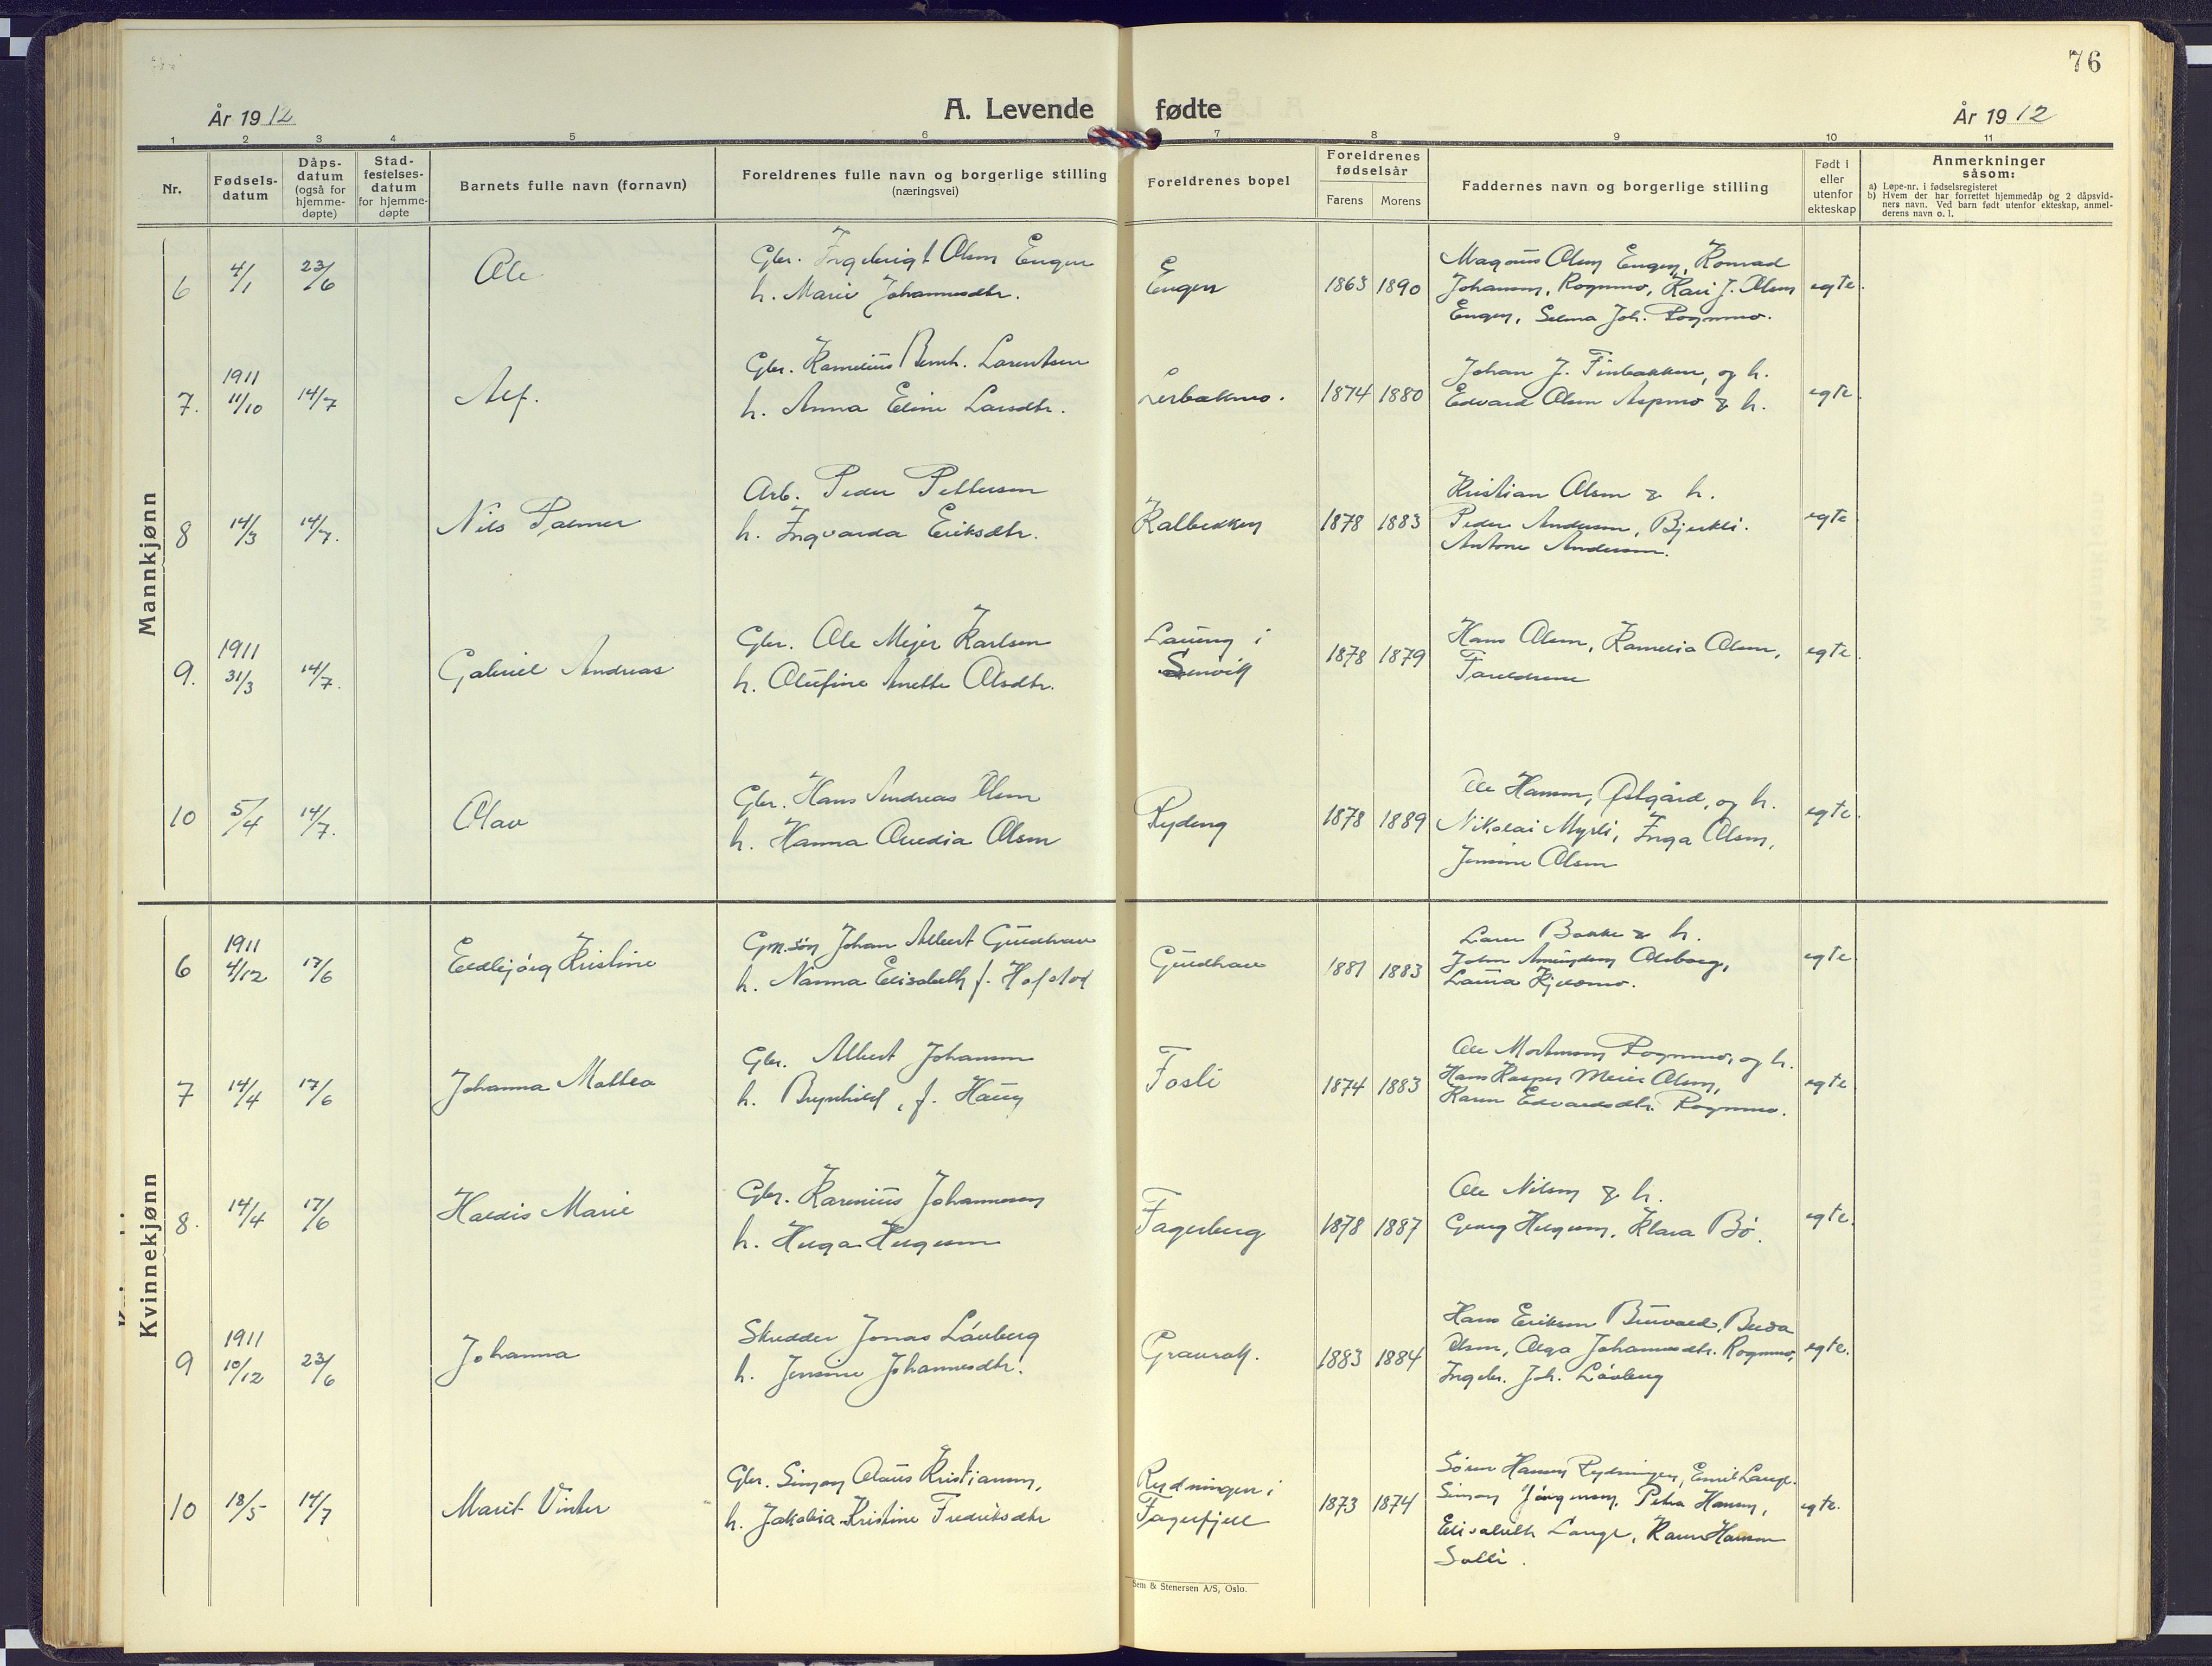 76
År 1912
A. Levende fødte
År 1912
1 2 3 4 5 6 7 8 9 10 11
Nr.
Fødsels-
datum
Dåps-
datum
(også for
hjemme-
døpte)
Stad-
festelses-
datum
for hjemme-
døpte
Barnets fulle navn (fornavn)
Foreldrenes fulle navn og borgerlige stilling
(næringsvei)
Foreldrenes bopel
Foreldrenes
fødselsår
Farens Morens
Faddernes navn og borgerlige stilling
Født i
eller
utenfor
ekteskap
Anmerkninger
såsom:
a) Løpe-nr. i fødselsregisteret
b) Hvem der har forrettet hjemmedåp og 2 dåpsvid-
ners navn. Ved barn født utenfor ekteskap, anmel-
derens navn o. l.
Mannkjønn
6 4/1 23/6 Ole
Gbr. Ingebrigt Olsen Engen
h. Marie Johannesdtr.
Engen 1863 1890
Magnus Olsen Engen, Konrad
Johansen, Rognmo, Kari J. Olsen
Engen, Selma Joh. Rognmo.
egte.
7. 1911
11/10 14/7 Alf.
Gbr. Kornelius Bernh. Lorentsen
h. Anna Eline Larsdtr.
Lerbakmo. 1874 1880
Johan J. Finbakken, og h.
Edvard Olsen Aspmo & h.
egte.
8 14/3 14/7. Nils Palmer
Arb. Peder Pettersen
h. Ingvarda Eriksdtr.
Kalbekken 1878 1883
Kristian Olsen & h.
Peder Andersen, Bjerkli.
Antone Andersen.
egte
9. 1911
31/3 14/7. Gabriel Andreas
Gbr. Ole Mejer Karlsen
h. Olufine Anette Olsdtr.
i
1878 1879
Hans Olsen, Kornelia Olsen,
Foreldrene
egte.
10 5/4 14/7. Olav
Gbr. Hans Andreas Olsen
h. Hanna Ovedia Olsen
Rydeng 1878 1889
Ole Hansen, Østgård, og h.
Nikolai Myrli, Inga Olsen,
Jensine Olsen
egte.
Kvinnekjønn
6 1911
4/12 17/6 Eldbjørg Kristine
Gm.søn Johan Albert Guldhav
h. Nanna Elisabeth f. Hofstad
Guldhav 1881 1883
Bakke & h.
John Amundsen Olsborg,
Laura Kjelsmo.
egte
7 14/4 17/6 Johanna Mattea
Gbr. Albert Johansen
h. Brynhild, f. Haug
Fosli 1874 1883
Ole Mortensen Rognmo, og h.
Hans Kasper Meier Olsen,
Karen Edvardsdtr. Rognmo.
egte
8. 14/4 17/6 Haldis Marie
Gbr. Karenius Johannesen
h. Helga Helgesen
Fagerberg 1878 1887
Ole Nilsen & h.
Georg Helgesen, Klara Bø.
egte.
9 1911
10/12 23/6 Johanna
Skredder Jonas Løvberg
h. Jensine Johannesdtr.
1883 1884
Hans Eriksen Buvold, Berda
Olsen, Olga Johannesdtr. Rognmo,
Ingebr. Joh. Løvberg
egte.
10 18/5 14/7 Marit Vinter
Gbr. Simon Olaus Kristiansen,
h. Jakobia Kristine Fredriksdtr
Rydningen i
Fagerfjell 1873 1874
Søren Hansen Rydningen, Emil Lange.
Simon Jørgensen, Petra Hansen,
Elisabeth Lange, Karen Hansen
Solli.
egte.
Sem & Stenersen A/S, Oslo.